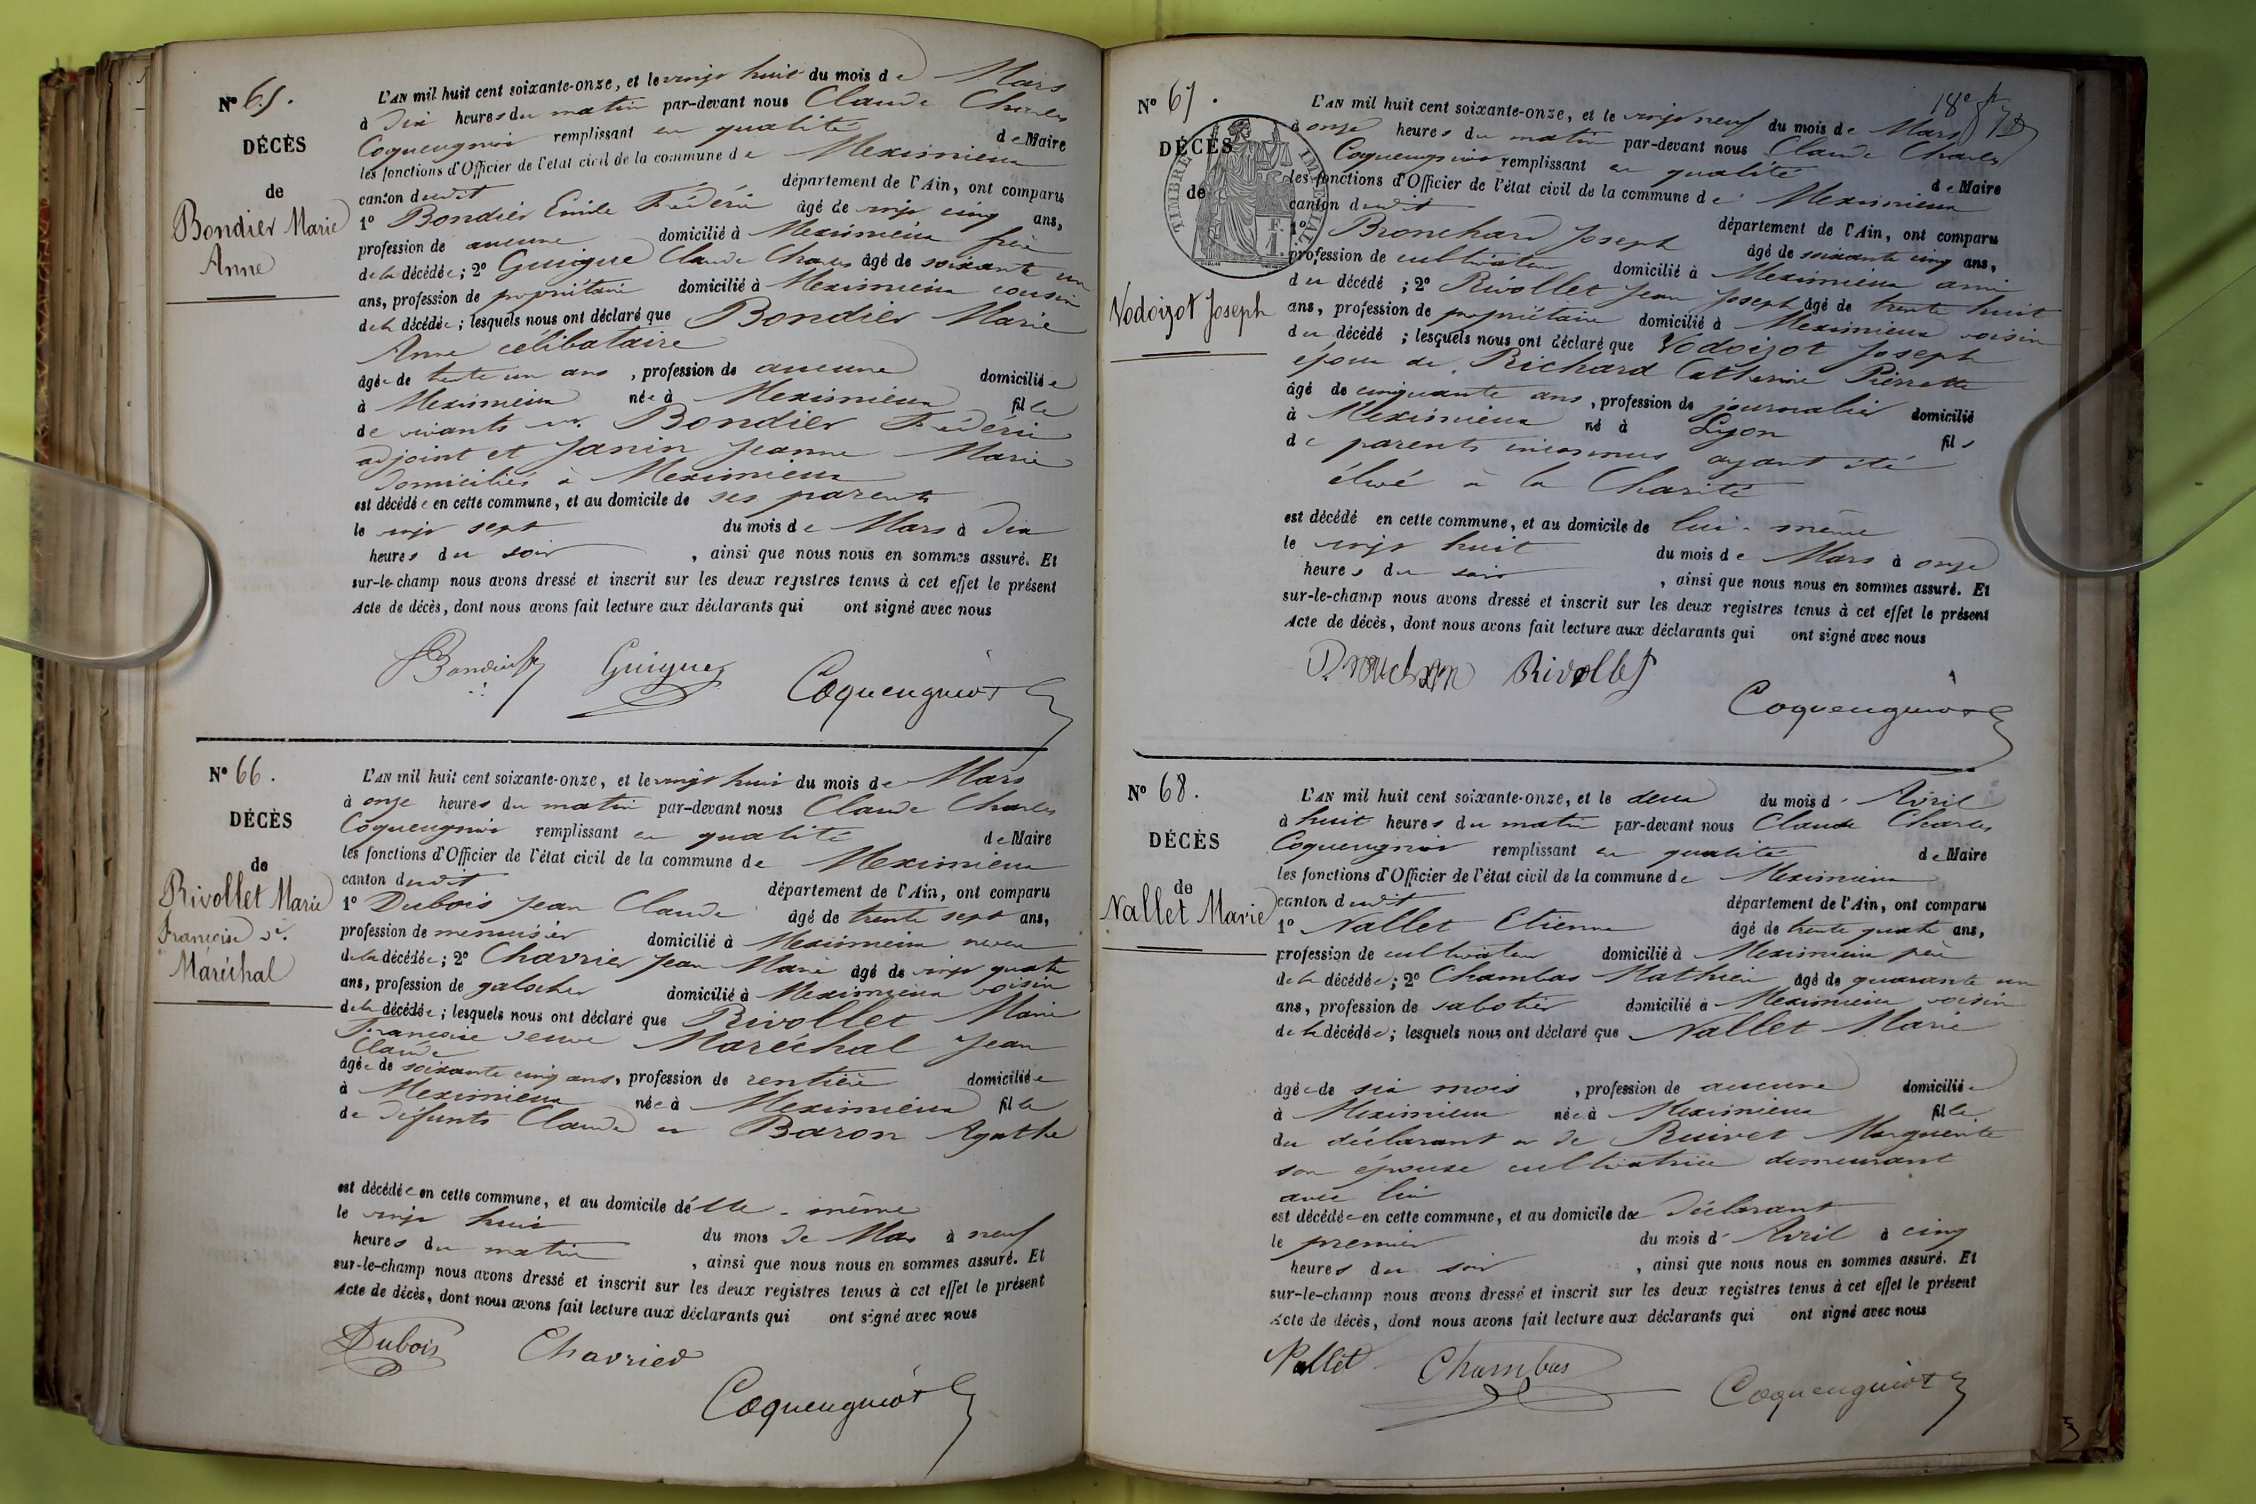 N° 65.
DÉCÈS
de
Bondier Marie
Anne
L'AN mil huit cent soixante-onze, et le vingt huit du mois de Mars
à dix heures du matin par-devant nous Claude Charles
Coquengniot remplissant en qualité de Maire
les fonctions d'Officier de l'état civil de la commune de Meximieux
canton dudit département de l'Ain, ont comparu
1° Bondier Emile Fédéric âgé de vingt cinq ans,
profession de aucune domicilié à Meximieux frère
de la décédée; 2° Guigue Claude Charles âgé de soixante un
ans, profession de propriétaire domicilié à Meximieux cousin
de la décédée; lesquels nous ont déclaré que Bondier Marie
Anne célibataire
âgée de trente un ans, profession de aucune domiciliée
à Meximieux née à Meximieux fille
de vivants Bondier Fédéric
adjoint et Janin Jeanne Marie
domiciliés à Meximieux
est décédée en cette commune, et au domicile de ses parents
le vingt sept du mois de Mars à dix
heures du soir, ainsi que nous nous en sommes assuré. Et
sur-le-champ nous avons dressé et inscrit sur les deux registres tenus à cet effet le présent
Acte de décès, dont nous avons fait lecture aux déclarants qui ont signé avec nous
Guigue Coquengniot
N° 66.
DÉCÈS
de
Rivollet Marie
Françoise Ve.
Maréchal
L'AN mil huit cent soixante-onze, et le vingt huit du mois de Mars
à onze heures du matin par-devant nous Claude Charles
Coquengniot remplissant en qualité de Maire
les fonctions d'Officier de l'état civil de la commune de Meximieux
canton dudit département de l'Ain, ont comparu
1° Dubois Jean Claude âgé de trente sept ans,
profession de menuisier domicilié à Meximieux neveu
de la décédée; 2° Chavrier Jean Marie âgé de vingt quatre
ans, profession de galocher domicilié à Meximieux voisin
de la décédée; lesquels nous ont déclaré que Rivollet Marie
Françoise veuve Maréchal Jean
Claude
âgée de soixante cinq ans, profession de rentière domiciliée
à Meximieux née à Meximieux fille
de défunts Claude et Baron Agathe
est décédée en cette commune, et au domicile d'elle-même
le vingt huit du mois de Mars à neuf
heures du matin, ainsi que nous nous en sommes assuré. Et
sur-le-champ nous avons dressé et inscrit sur les deux registres tenus à cet effet le présent
Acte de décès, dont nous avons fait lecture aux déclarants qui ont signé avec nous
Dubois Chavrier
Coquengniot
18e
N° 67.
DÉCÈS
de
TIMBRE IMPÉRIAL
1 F.
Vodoizot Joseph
L'AN mil huit cent soixante-onze, et le vingt neuf du mois de Mars
à onze heures du matin par-devant nous Claude Charles
Coquengniot remplissant en qualité de Maire
les fonctions d'Officier de l'état civil de la commune de Meximieux
canton dudit département de l'Ain, ont comparu
1° Bronchard Joseph âgé de soixante cinq ans,
profession de cultivateur domicilié à Meximieux ami
du décédé; 2° Rivollet Jean Joseph âgé de trente huit
ans, profession de propriétaire domicilié à Meximieux voisin
du décédé; lesquels nous ont déclaré que Vodoizot Joseph
époux de Richard Catherine Pierrette
âgé de cinquante ans, profession de journalier domicilié
à Meximieux né à Lyon fils
de parents inconnus ayant été
élevé à la Charité
est décédé en cette commune, et au domicile de lui-même
le vingt huit du mois de Mars à onze
heures du soir, ainsi que nous nous en sommes assuré. Et
sur-le-champ nous avons dressé et inscrit sur les deux registres tenus à cet effet le présent
Acte de décès, dont nous avons fait lecture aux déclarants qui ont signé avec nous
Rivollet
Coquengniot
N° 68.
DÉCÈS
de
Nallet Marie
L'AN mil huit cent soixante-onze, et le deux du mois d'Avril
à huit heures du matin par-devant nous Claude Charles
Coquengniot remplissant en qualité de Maire
les fonctions d'Officier de l'état civil de la commune de Meximieux
canton dudit département de l'Ain, ont comparu
1° Nallet Etienne âgé de trente quatre ans,
profession de cultivateur domicilié à Meximieux père
de la décédée; 2° Chambas Mathieu âgé de quarante un
ans, profession de sabotier domicilié à Meximieux voisin
de la décédée; lesquels nous ont déclaré que Nallet Marie
âgée de six mois, profession de aucune domiciliée
à Meximieux née à Meximieux fille
du déclarant et de Ruivet Marguerite
son épouse cultivatrice demeurant
avec lui
est décédée en cette commune, et au domicile du déclarant
le premier du mois d'Avril à cinq
heures du soir, ainsi que nous nous en sommes assuré. Et
sur-le-champ nous avons dressé et inscrit sur les deux registres tenus à cet effet le présent
Acte de décès, dont nous avons fait lecture aux déclarants qui ont signé avec nous
Nallet Chambas Coquengniot